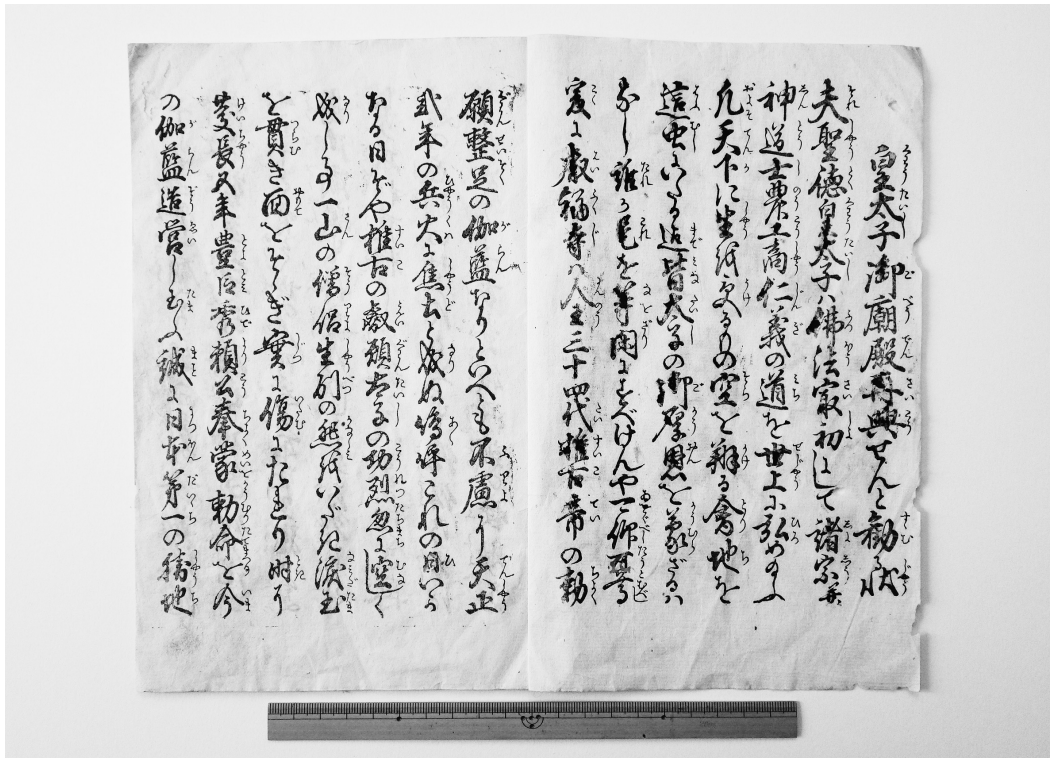 皇太子御廟殿再興せんと勧る状
夫聖徳皇太子ハ佛法最初にして諸宗并
神道士農工商仁義の道を世上に弘めのふ
凡天下に生を受るもの空を翔る禽地を
這虫にいたる迄皆太子の御厚恩を蒙ざるハ
なし誰か是を等閑にすべけんや一仰
爰に叡福寺ハ人王三十四代推古帝の勅
願整足の伽藍なりといへとも不慮に天正
弐年の兵火に焦土と成ぬ嗚呼これの日いか
なる日ぞや推古の叡願太子の功烈忽に空しく
成しる一山の僧侶生別の愁を涙玉
を貫き面をそゝぎ実に傷にたれり時に
慶長五年豊臣秀頼公奉蒙勅命を今
の伽藍造営し玉ふ誠に日本第一の勝地